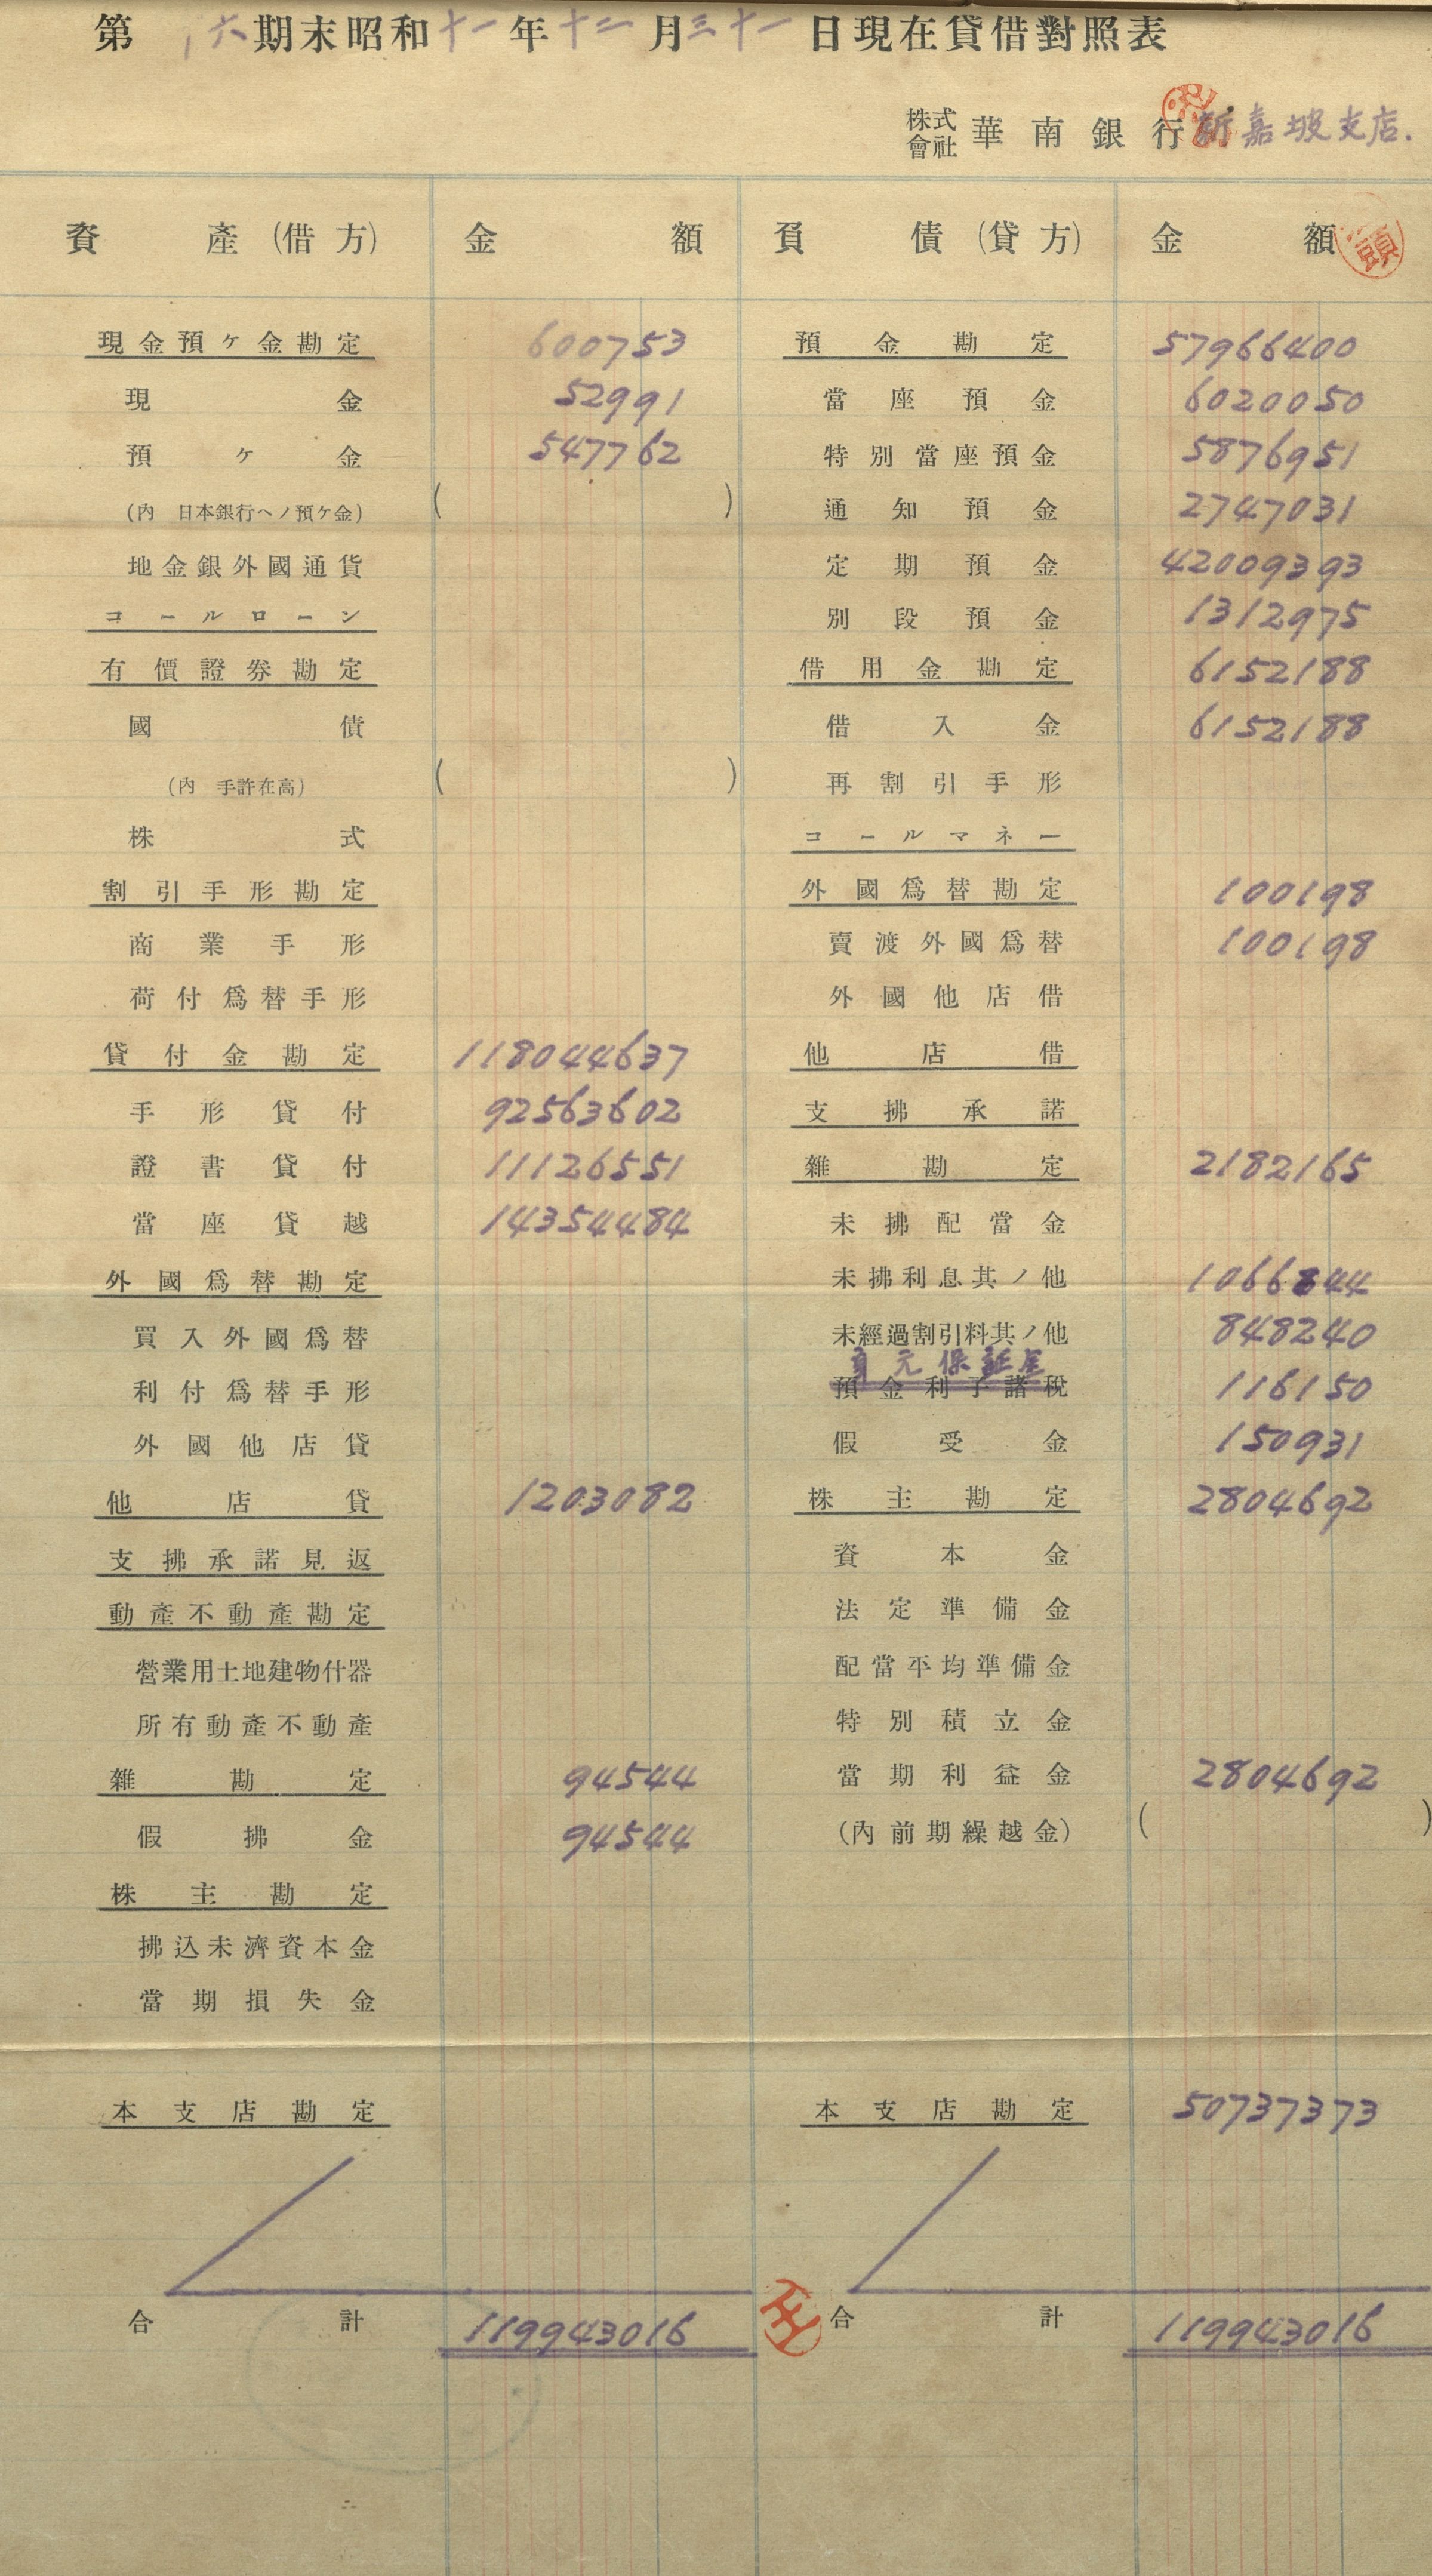 第 六期末昭和十一年十二月三十一日現在貸借對照表
株式會社 華南銀行新嘉坡支店.
資產(借方) 金額 負債(貸方) 金額 頭
現金預ケ金勘定 600753 預金勘定 57966400
現金 52991 當座預金 6020050
預ケ金 547762 特別當座預金 5876951
(內 日本銀行ヘノ預ケ金) ( ) 通知預金 2747031
地金銀外國通貨 定期預金 42009393
コールローン 別段預金 1312975
有價證券勘定 借用金勘定 6152188
國債 借入金 6152188
(內 手許在高) ( ) 再割引手形
株式 コールマネー
割引手形勘定 外國爲替勘定 100198
商業手形 賣渡外國爲替 100198
荷付爲替手形 外國他店借
貸付金勘定 118044637 他店借
手形貸付 92563602 支拂承諾
證書貸付 11126551 雜勘定 2182165
當座貸越 14354484 未拂配當金
外國爲替勘定 未拂利息其ノ他 1066844
買入外國爲替 未經過割引料其ノ他 848240
身元保証金
利付爲替手形 預金利子諸稅 116150
外國他店貸 假受金 150931
他店貸 1203082 株主勘定 2804692
支拂承諾見返 資本金
動產不動產勘定 法定準備金
營業用土地建物什器 配當平均準備金
所有動產不動產 特別積立金
雜勘定 94544 當期利益金 2804692
假拂金 94544 (內前期繰越金) ( )
株主勘定
拂込未濟資本金
當期損失金
本支店勘定 本支店勘定 50737373
合計 119943016 王 合計 119943016